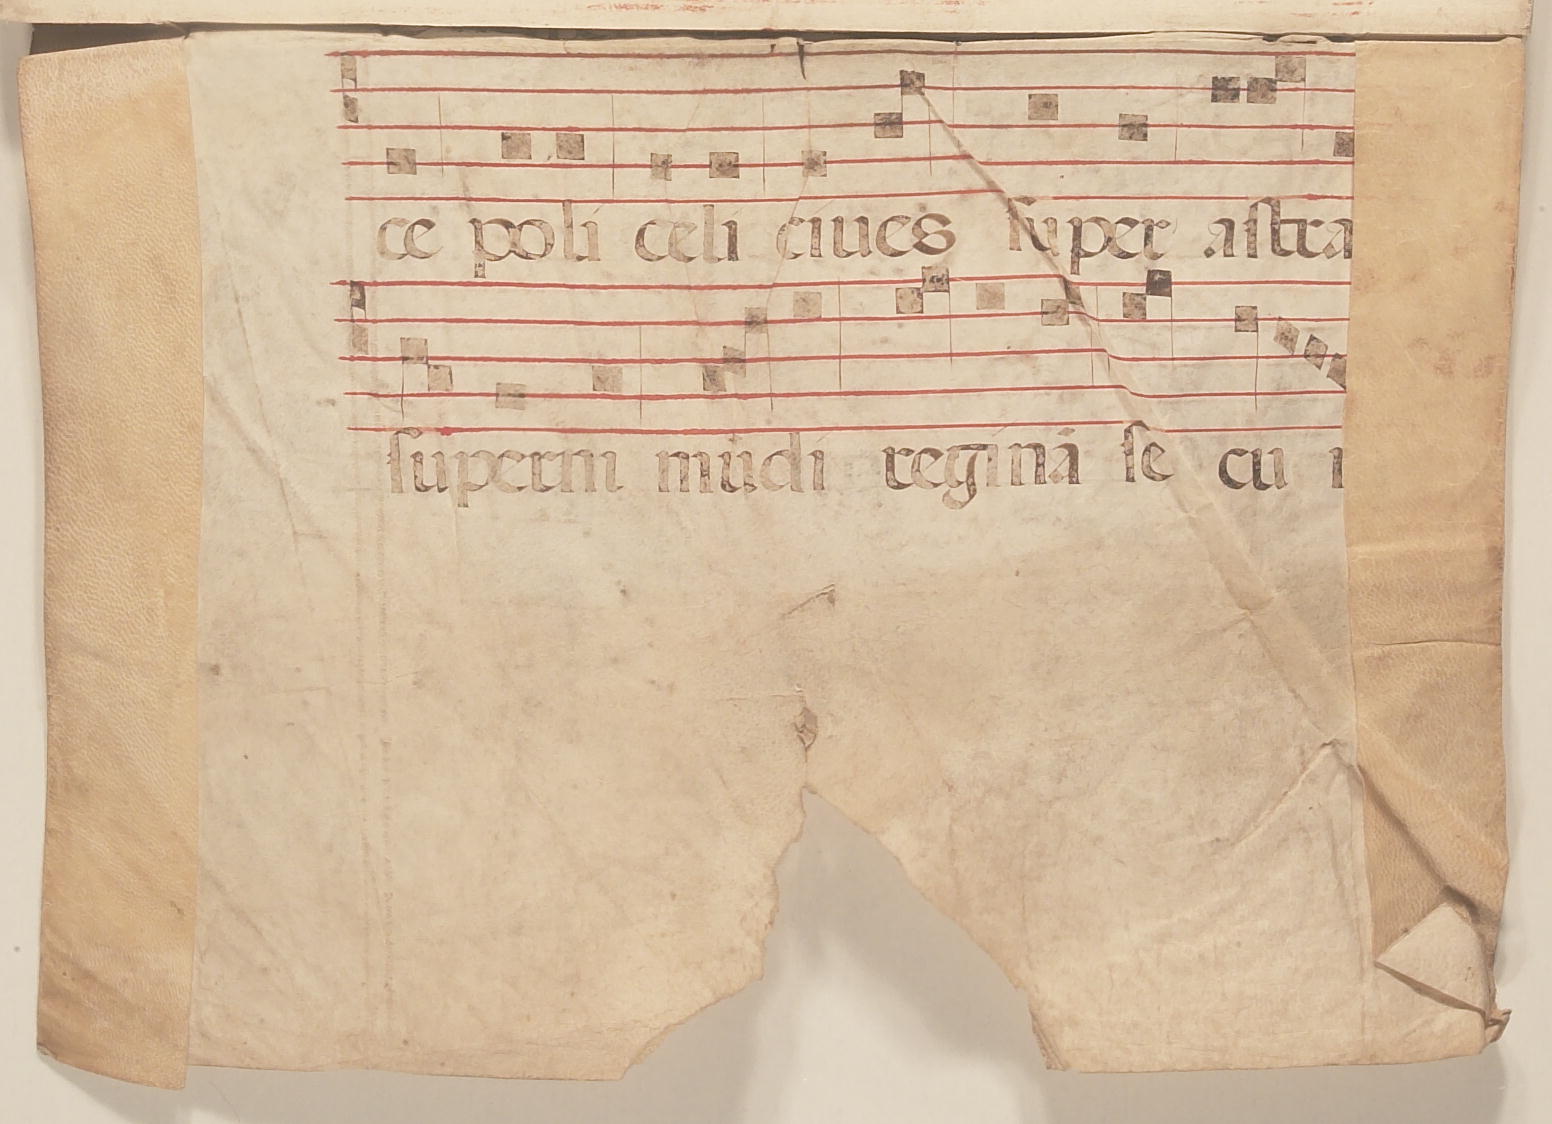 ce poli celi ciues super astra
superni mūdi reginā se cu